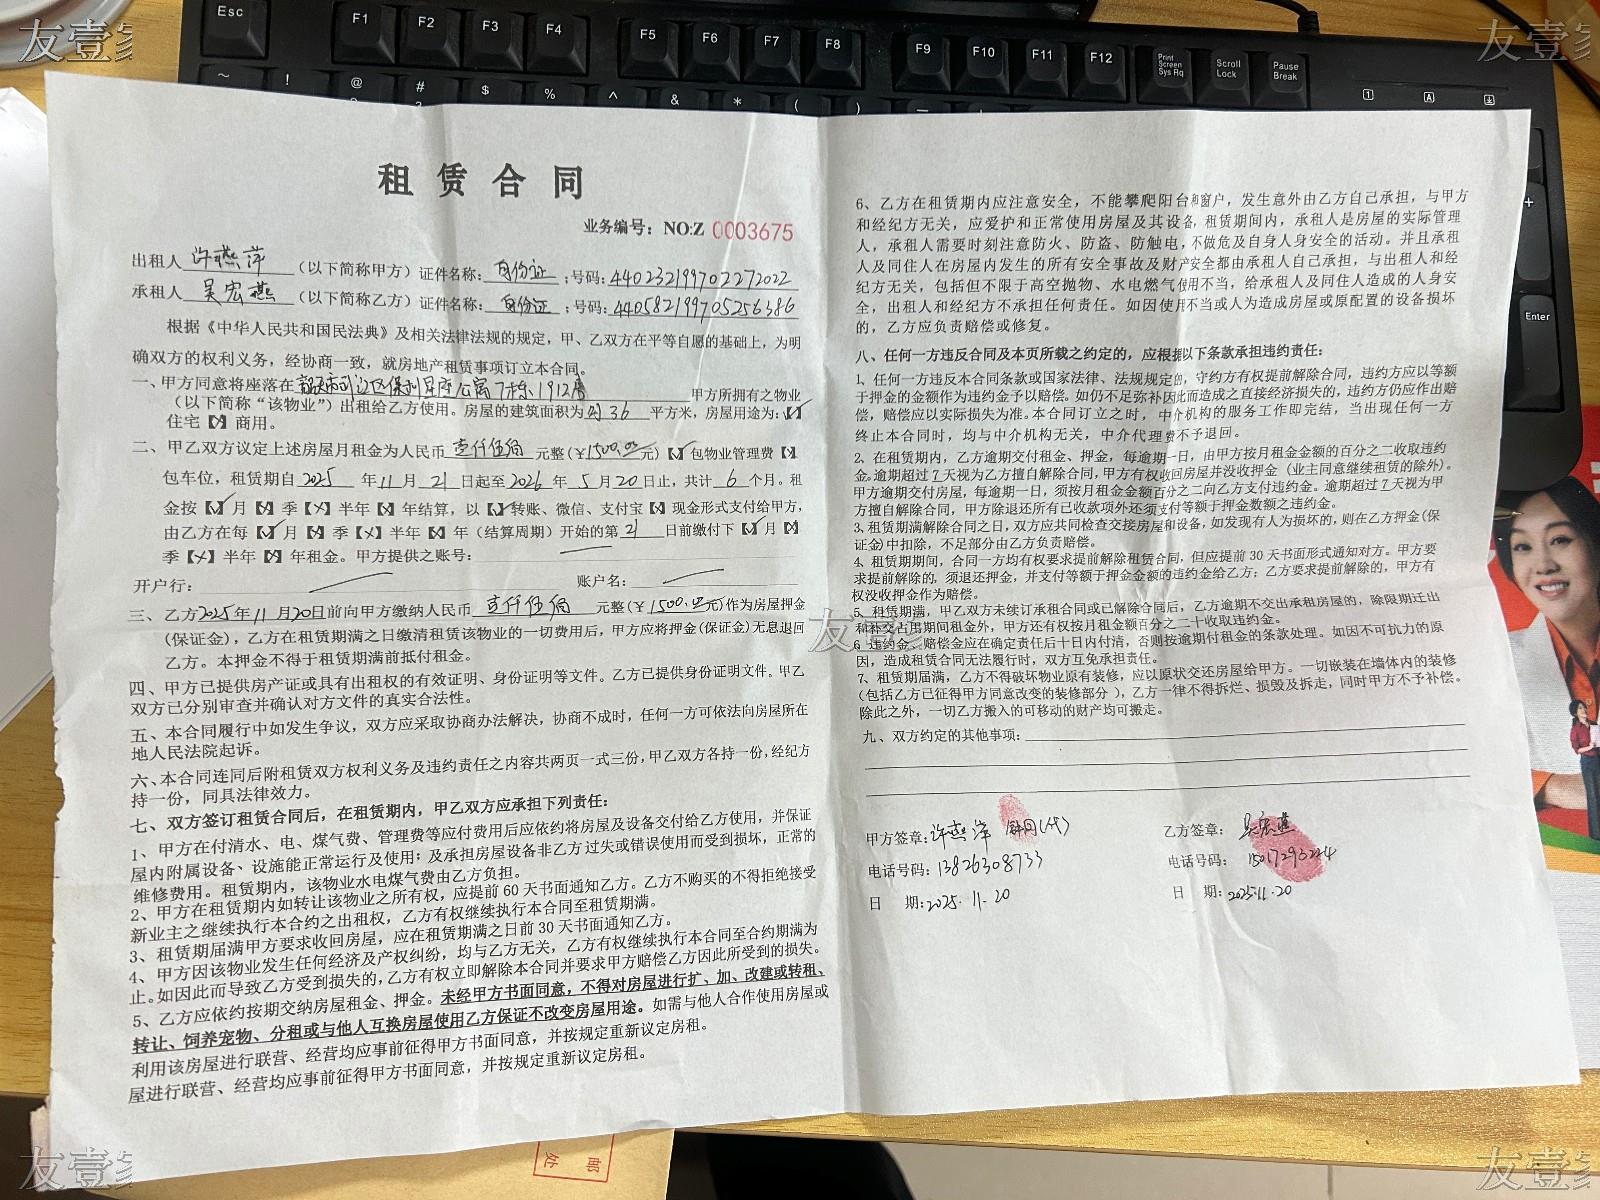 友壹家
友壹家
Esc F1 F2 F3 F4 F5 F6 F7 F8 F9 F10 F11 F12 Print Screen Sys Rq Scroll Lock Pause Break
~ ! @ # $ % ^ & * ( )
Enter
租赁合同
业务编号：NO:Z 0003675
出租人 许燕萍 （以下简称甲方）证件名称：身份证；号码：440232199702272022
承租人 吴宏燕 （以下简称乙方）证件名称：身份证；号码：440582199705256386
根据《中华人民共和国民法典》及相关法律法规的规定，甲、乙双方在平等自愿的基础上，为明
确双方的权利义务，经协商一致，就房地产租赁事项订立本合同。
一、甲方同意将座落在 韶关市浈江区保利星座公寓7栋1912房 甲方所拥有之物业
（以下简称“该物业”）出租给乙方使用。房屋的建筑面积为 约36 平方米，房屋用途为：【✓】
住宅【×】商用。
二、甲乙双方议定上述房屋月租金为人民币 壹仟伍佰 元整(￥1500.00元)【✓】包物业管理费【×】
包车位，租赁期自 2025 年 11 月 21 日起至 2026 年 5 月 20 日止，共计 6 个月。租
金按【✓】月【×】季【×】半年【×】年结算，以【✓】转账、微信、支付宝【×】现金形式支付给甲方，
由乙方在每【✓】月【×】季【×】半年【×】年（结算周期）开始的第 21 日前缴付下【✓】月【×】
季【×】半年【×】年租金。甲方提供之账号：
开户行： 账户名：
三、乙方2025年11月20日前向甲方缴纳人民币 壹仟伍佰 元整(￥1500.00元)作为房屋押金
(保证金)，乙方在租赁期满之日缴清租赁该物业的一切费用后，甲方应将押金(保证金)无息退回
乙方。本押金不得于租赁期满前抵付租金。
四、甲方已提供房产证或具有出租权的有效证明、身份证明等文件。乙方已提供身份证明文件。甲乙
双方已分别审查并确认对方文件的真实合法性。
五、本合同履行中如发生争议，双方应采取协商办法解决，协商不成时，任何一方可依法向房屋所在
地人民法院起诉。
六、本合同连同后附租赁双方权利义务及违约责任之内容共两页一式三份，甲乙双方各持一份，经纪方
持一份，同具法律效力。
七、双方签订租赁合同后，在租赁期内，甲乙双方应承担下列责任：
1、甲方在付清水、电、煤气费、管理费等应付费用后应依约将房屋及设备交付给乙方使用，并保证
屋内附属设备、设施能正常运行及使用；及承担房屋设备非乙方过失或错误使用而受到损坏，正常的
维修费用。租赁期内，该物业水电煤气费由乙方负担。
2、甲方在租赁期内如转让该物业之所有权，应提前60天书面通知乙方。乙方不购买的不得拒绝接受
新业主之继续执行本合约之出租权，乙方有权继续执行本合同至租赁期满。
3、租赁期届满甲方要求收回房屋，应在租赁期满之日前30天书面通知乙方。
4、甲方因该物业发生任何经济及产权纠纷，均与乙方无关，乙方有权继续执行本合同至合约期满为
止。如因此而导致乙方受到损失的，乙方有权立即解除本合同并要求甲方赔偿乙方因此所受到的损失。
5、乙方应依约按期交纳房屋租金、押金。未经甲方书面同意，不得对房屋进行扩、加、改建或转租、
转让、饲养宠物、分租或与他人互换房屋使用乙方保证不改变房屋用途。如需与他人合作使用房屋或
利用该房屋进行联营、经营均应事前征得甲方书面同意，并按规定重新议定房租。
屋进行联营、经营均应事前征得甲方书面同意，并按规定重新议定房租。
6、乙方在租赁期内应注意安全，不能攀爬阳台和窗户，发生意外由乙方自己承担，与甲方
和经纪方无关，应爱护和正常使用房屋及其设备，租赁期间内，承租人是房屋的实际管理
人，承租人需要时刻注意防火、防盗、防触电，不做危及自身人身安全的活动。并且承租
人及同住人在房屋内发生的所有安全事故及财产安全都由承租人自己承担，与出租人和经
纪方无关，包括但不限于高空抛物、水电燃气使用不当，给承租人及同住人造成的人身安
全，出租人和经纪方不承担任何责任。如因使用不当或人为造成房屋或原配置的设备损坏
的，乙方应负责赔偿或修复。
八、任何一方违反合同及本页所载之约定的，应根据以下条款承担违约责任：
1、任何一方违反本合同条款或国家法律、法规规定的，守约方有权提前解除合同，违约方应以等额
于押金的金额作为违约金予以赔偿。如仍不足弥补因此而造成之直接经济损失的，违约方仍应作出赔
偿，赔偿应以实际损失为准。本合同订立之时，中介机构的服务工作即完结，当出现任何一方
终止本合同时，均与中介机构无关，中介代理费不予退回。
2、在租赁期内，乙方逾期交付租金、押金，每逾期一日，由甲方按月租金金额的百分之二收取违约
金。逾期超过7天视为乙方擅自解除合同，甲方有权收回房屋并没收押金（业主同意继续租赁的除外）。
甲方逾期交付房屋，每逾期一日，须按月租金金额百分之二向乙方支付违约金。逾期超过7天视为甲
方擅自解除合同，甲方除退还所有已收款项外还须支付等额于押金数额之违约金。
3、租赁期满解除合同之日，双方应共同检查交接房屋和设备，如发现有人为损坏的，则在乙方押金(保
证金)中扣除，不足部分由乙方负责赔偿。
4、租赁期期间，合同一方均有权要求提前解除租赁合同，但应提前30天书面形式通知对方。甲方要
求提前解除的，须退还押金，并支付等额于押金金额的违约金给乙方；乙方要求提前解除的，甲方有
权没收押金作为赔偿。
5、租赁期满，甲乙双方未续订承租合同或已解除合同后，乙方逾期不交出承租房屋的，除限期迁出
和补交占用期间租金外，甲方还有权按月租金额百分之二十收取违约金。
6、违约金、赔偿金应在确定责任后十日内付清，否则按逾期付租金的条款处理。如因不可抗力的原
因，造成租赁合同无法履行时，双方互免承担责任。
7、租赁期届满，乙方不得破坏物业原有装修，应以原状交还房屋给甲方。一切嵌装在墙体内的装修
（包括乙方已征得甲方同意改变的装修部分），乙方一律不得拆烂、损毁及拆走，同时甲方不予补偿。
除此之外，一切乙方搬入的可移动的财产均可搬走。
九、双方约定的其他事项：
甲方签章：许燕萍 (代) 乙方签章：吴宏燕
电话号码：13826308733 电话号码：15017293224
日 期：2025.11.20 日 期：2025.11.20
友壹家
邮
处
友壹家
友壹家